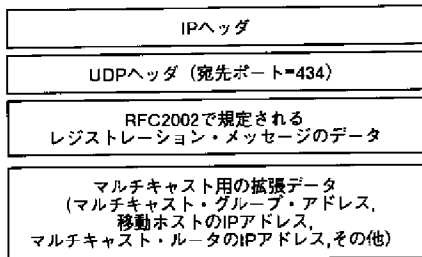 IPヘッダ
UDPヘッダ (宛先ポート=434)
RFC2002で規定される
レジストレーション・メッセージのデータ
マルチキャスト用の拡張データ
(マルチキャスト・グループ・アドレス,
移動ホストのIPアドレス,
マルチキャスト・ルータのIPアドレス,その他)